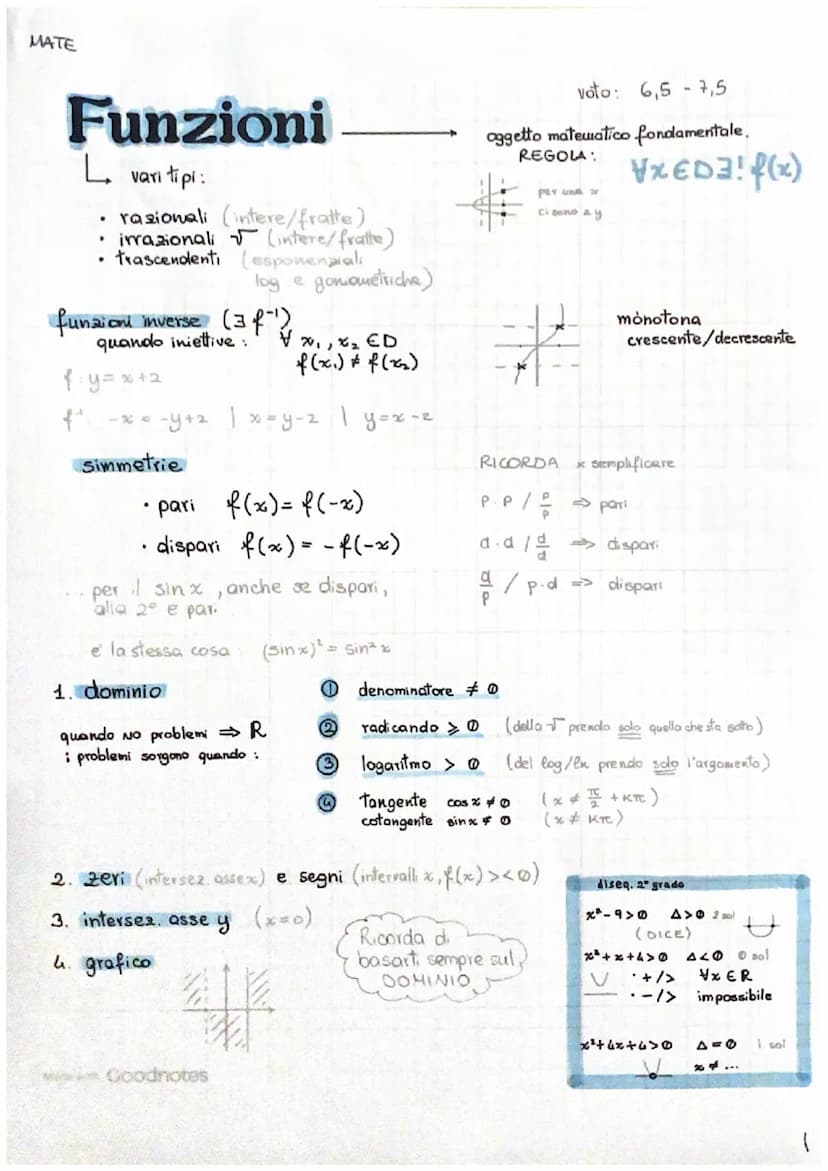 MATE
voto: 6,5 - 7,5
Funzioni
oggetto matematico fondamentale.
REGOLA: ∀x∈D∃! f(x)
per una x
ci sono 2 y
vari tipi:
• razionali (intere/fratte)
• irrazionali √ (intere/fratte)
• trascendenti (esponenziali
log e goniometriche)
funzioni inverse (∃ f⁻¹)
quando iniettive: ∀ x₁, x₂ ∈D
f(x₁) ≠ f(x₂)
mònotona
crescente/decrescente
f: y = x+2
f⁻¹ -x = -y+2 | x = y-2 | y = x-2
simmetrie
• pari f(x) = f(-x)
• dispari f(x) = -f(-x)
... per il sin x, anche se dispari,
alla 2° e pari
e' la stessa cosa (sin x)² = sin² x
RICORDA x semplificare
p.p / p/p ⇒ pari
d.d / d/d ⇒ dispari
d/p / p.d => dispari
1. dominio
quando NO problemi ⇒ R
i problemi sorgono quando:
① denominatore ≠ 0
② radicando ⩾ 0 (della √ prendo solo quello che sta sotto)
③ logaritmo > 0 (del log/ln prendo solo l'argomento)
④ Tangente cos x ≠ 0 (x ≠ π/2 + Kπ)
cotangente sin x ≠ 0 (x ≠ Kπ)
2. zeri (intersez. asse x) e segni (intervalli x, f(x) >< 0)
3. intersez. asse y (x=0)
4. grafico
Ricorda di
basarti sempre sul
DOMINIO
diseq. 2° grado
x²-9>0 Δ>0 2 sol
(DICE)
x²+x+4>0 Δ<0 0 sol
• +/> ∀x∈R
• -/> impossibile
x²+4x+4>0 Δ=0 1 sol
x ≠ ...
Goodnotes
1